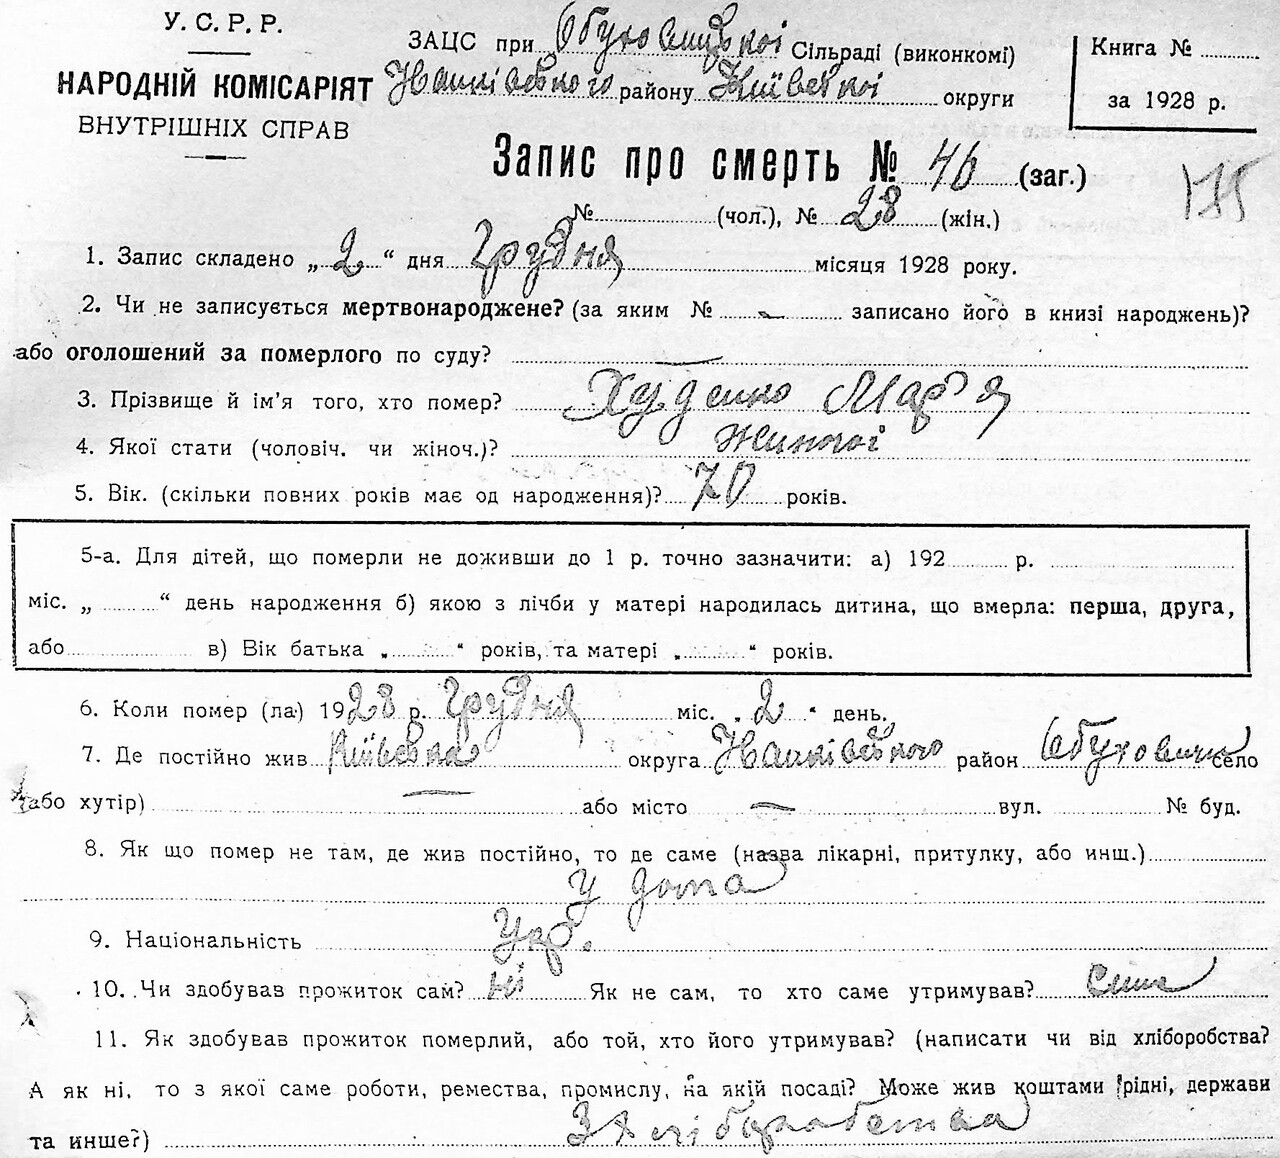 У. С. Р. Р.
НАРОДНІЙ КОМІСАРІЯТ
ВНУТРІШНІХ СПРАВ
ЗАЦС при Обуховицької Сільраді (виконкомі)
Іванківського району Київської округи
Книга №
за 1928 р.
Запис про смерть № 46 (заг.)
185
№ (чол.), № 28 (жін.)
1. Запис складено „ 2 “ дня Грудня місяця 1928 року.
2. Чи не записується мертвонароджене? (за яким № - записано його в книзі народжень)?
або оголошений за померлого по суду? —
3. Прізвище й ім'я того, хто помер? Худенко Мар'я
4. Якої стати (чоловіч. чи жіноч.)? Жиночої
5. Вік. (скільки повних років має од народження)? 70 років.
5-а. Для дітей, що померли не доживши до 1 р. точно зазначити: а) 192 р.
міс. „ “ день народження б) якою з лічби у матері народилась дитина, що вмерла: перша, друга,
або в) Вік батька „ “ років, та матері „ “ років.
6. Коли помер (ла) 1928 р. Грудня міс. „ 2 “ день.
7. Де постійно жив Київська округа Іванківського район Обуховичи село
(або хутір) — або місто — вул. № буд.
8. Як що помер не там, де жив постійно, то де саме (назва лікарні, притулку, або инш.)
У дома
9. Національність Укр.
10. Чи здобував прожиток сам? ні Як не сам, то хто саме утримував? син
11. Як здобував прожиток померлий, або той, хто його утримував? (написати чи від хліборобства?
А як ні, то з якої саме роботи, ремества, промислу, на якій посаді? Може жив коштами рідні, держави
та инше?) З хліборобства